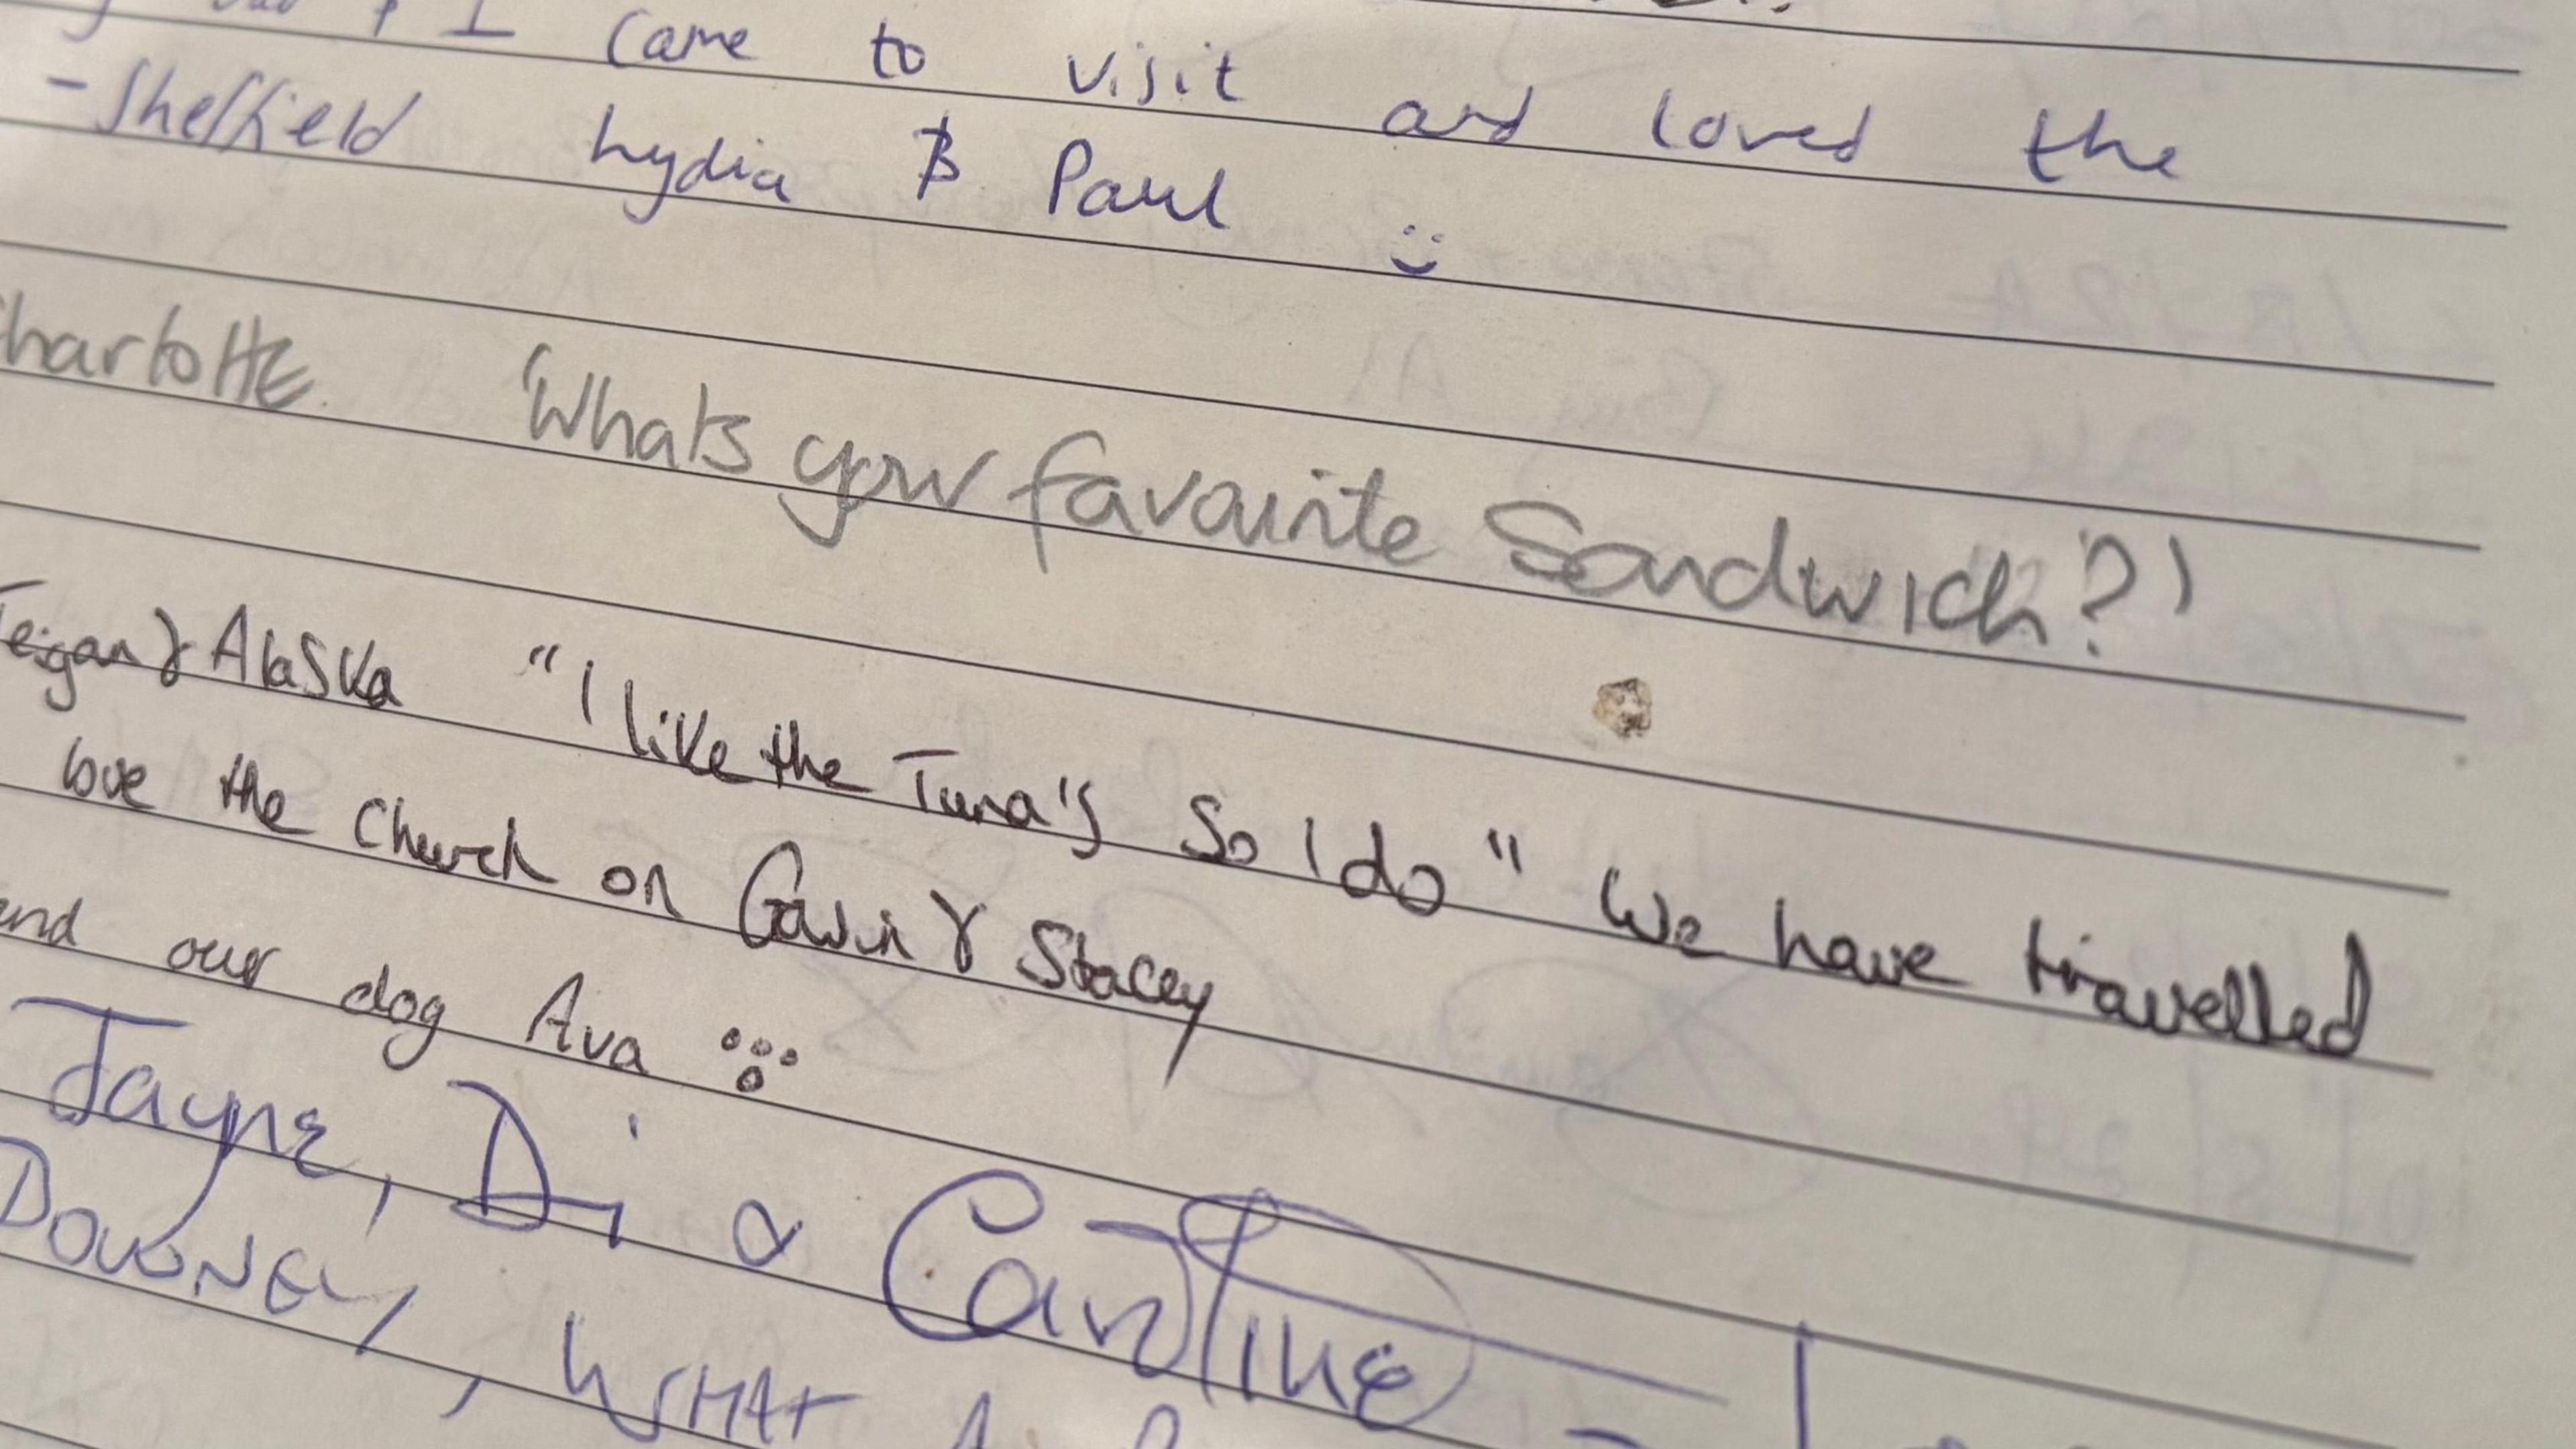 & I came to visit and loved the
- Sheffield Lydia & Paul
harlotte 'Whats your favourite Sandwich?'
Teigan & Alaska "I like the Tuna's So I do" We have travelled
love the Church on Gavin & Stacey
and our dog Ava
Jayne, Di & Caroline
DOWNEY, WHAT A